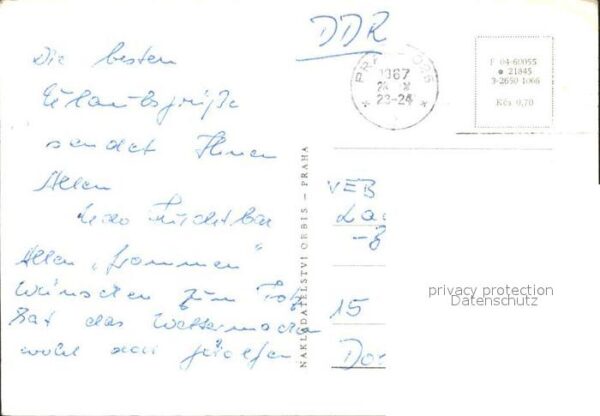 DDR
Die besten
Urlaubsgrüße
sendet Ihnen
Allen
Allen „frommen"
Wünschen zum Trotz
hat das Wettermachen
wohl
1967
23-24
F 04-60055
21845
3-2650 1066
Kčs 0,70
NAKLADATELSTVÍ ORBIS – PRAHA
VEB
15
privacy protection
Datenschutz